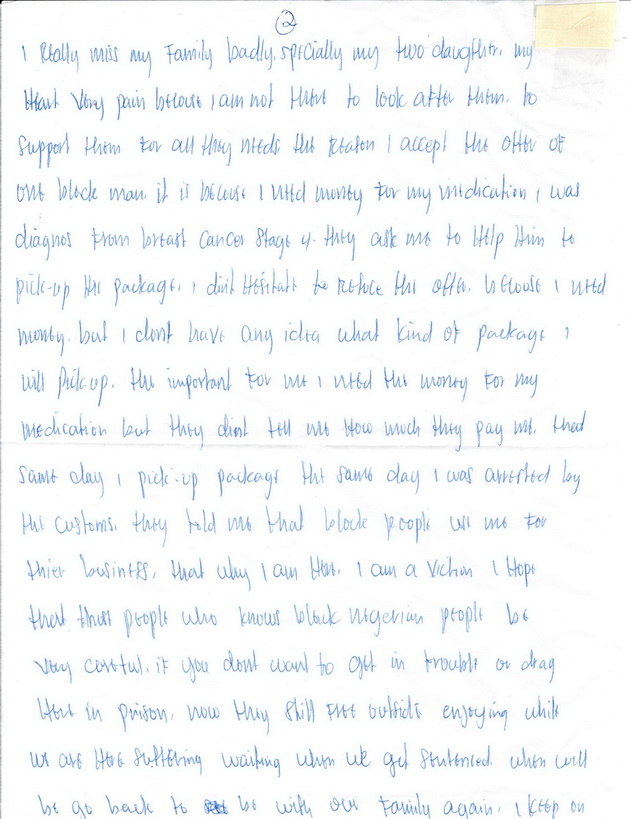 2
I Really miss my Family badly. specially my two daughter. my
Heart Very pain because I am not there to look after them. to
support them For all they needs the reason I accept the offer of
one black man. it is because I need money For my medication I was
diagnos From breast cancer stage 4. they ask me to Help Him to
pick-up the package. I dint Hesitate to refuse the offer. because I need
money. but I dont have any idea what kind of package I
will pick up. the important For me I need the money For my
medication but they dint tell me How much they pay me. that
same day I pick-up package the same day I was arrested by
the customs. they told me that black people use me For
thier business, that why I am Here. I am a victim I Hope
that those people who knows black nigerian people be
very careful. if you dont want to get in trouble or drag
Here in prison. now they still Free outside enjoying while
we are Here suffering waiting when we get sentenced. when will
be go back to be with our Family again. I keep on